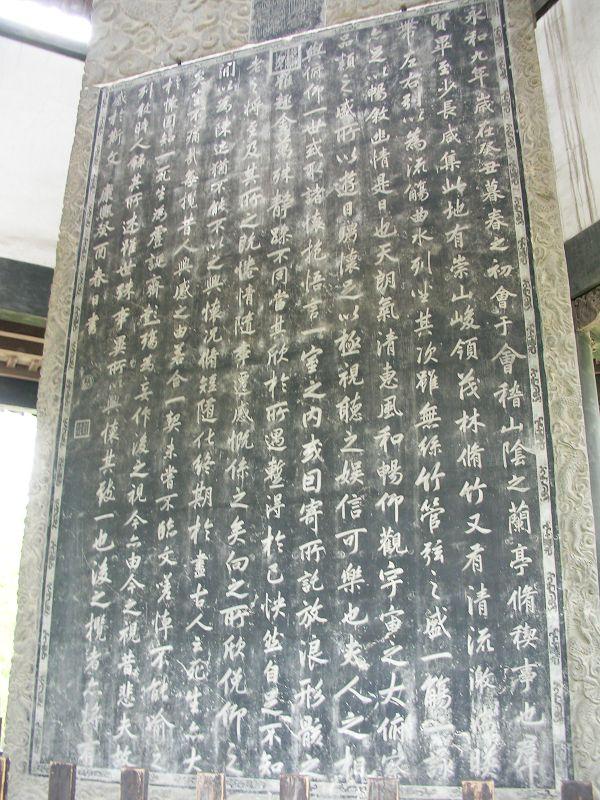 永和九年歲在癸丑暮春之初會于會稽山陰之蘭亭脩禊事也群
賢畢至少長咸集此地有崇山峻領茂林脩竹又有清流激湍映
帶左右引以為流觴曲水列坐其次雖無絲竹管弦之盛一觴一詠
亦足以暢敘幽情是日也天朗氣清惠風和暢仰觀宇宙之大俯察
品類之盛所以遊目騁懷足以極視聽之娛信可樂也夫人之相
與俯仰一世或取諸懷抱悟言一室之內或因寄所託放浪形骸之
雖趣舍萬殊靜躁不同當其欣於所遇蹔得於己快然自足不知
老之將至及其所之既惓情隨事遷感慨係之矣向之所欣俛仰之
間以為陳迹猶不能不以之興懷況脩短隨化終期於盡古人云死生亦大
矣豈不痛哉每攬昔人興感之由若合一契未嘗不臨文嗟悼不能喻之
於懷固知一死生為虛誕齊彭殤為妄作後之視今亦由今之視昔悲夫故
列敘時人錄其所述雖世殊事異所以興懷其致一也後之攬者亦將有
感於斯文 康熙癸酉春日書